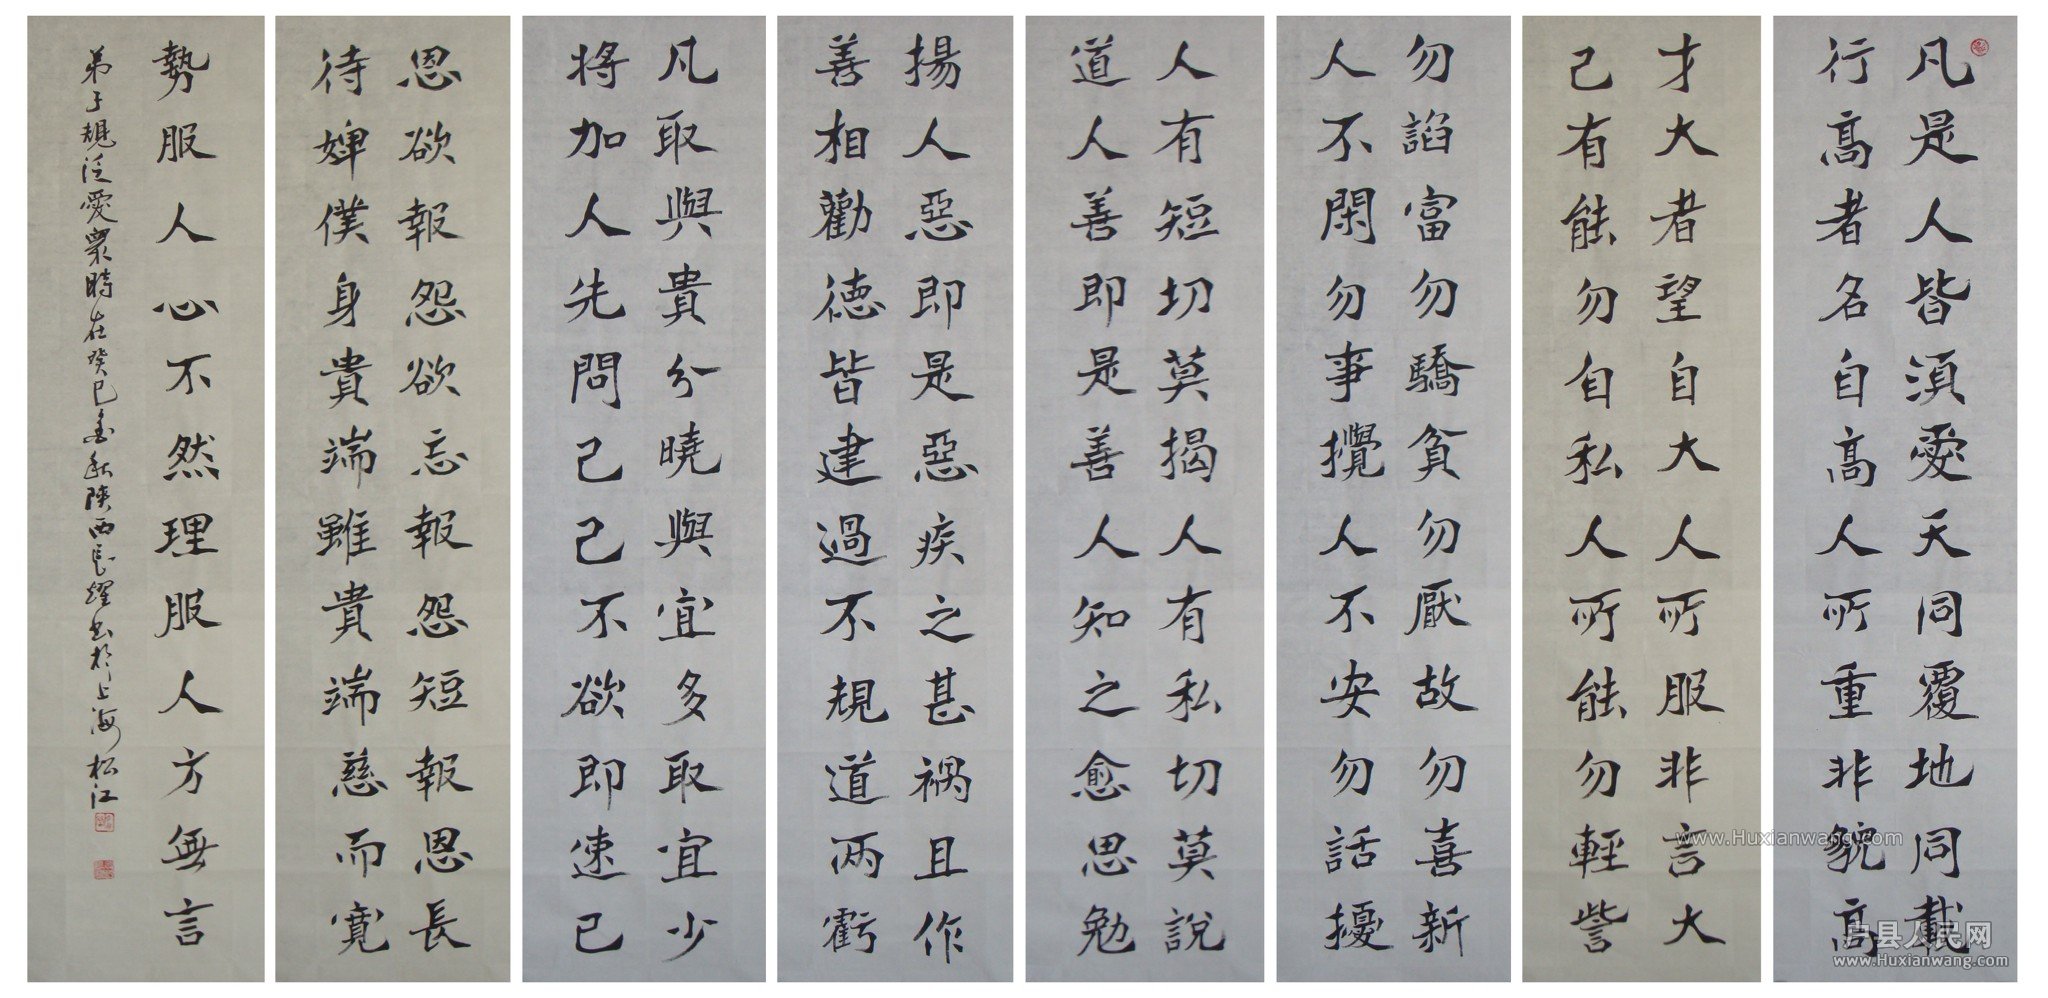 凡是人皆須愛天同覆地同載
行高者名自高人所重非貌高
才大者望自大人所服非言大
己有能勿自私人所能勿輕訾
勿諂富勿驕貧勿厭故勿喜新
人不閑勿事攪人不安勿話擾
人有短切莫揭人有私切莫說
道人善即是善人知之愈思勉
揚人惡即是惡疾之甚禍且作
善相勸德皆建過不規道兩虧
凡取與貴分曉與宜多取宜少
將加人先問己己不欲即速已
恩欲報怨欲忘報怨短報恩長
待婢僕身貴端雖貴端慈而寬
勢服人心不然理服人方無言
弟子規泛愛眾時在癸巳金秋陝西長耀書於上海松江
www.Huxianwang.com
户县人民网
www.Huxianwang.com